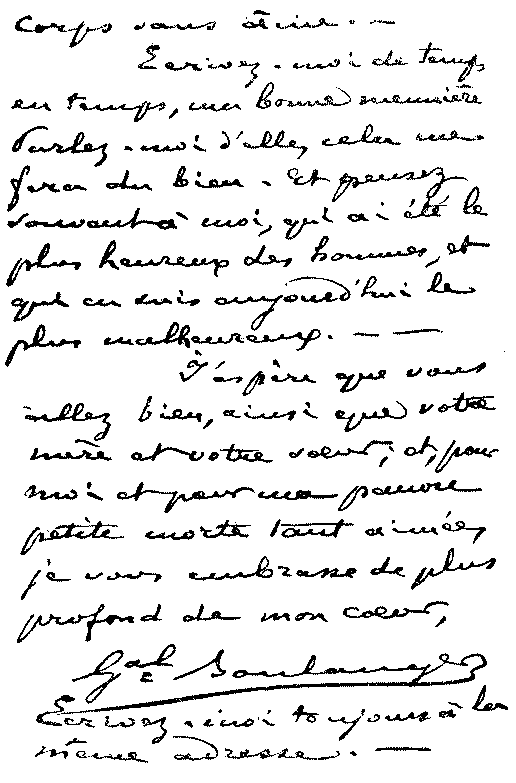 corps sans âme. —
Ecrivez-moi de temps
en temps, ma bonne meunière
Parlez-moi d'elle, cela me
fera du bien. Et pensez
souvent à moi, qui ai été le
plus heureux des hommes, et
qui en suis aujourd'hui le
plus malheureux. — —
J'espère que vous
allez bien, ainsi que votre
mère et votre sœur; et, pour
moi et pour ma pauvre
petite morte tant aimée,
je vous embrasse de plus
profond de mon cœur,
Gal Boulanger
Ecrivez-moi toujours à la
même adresse. —